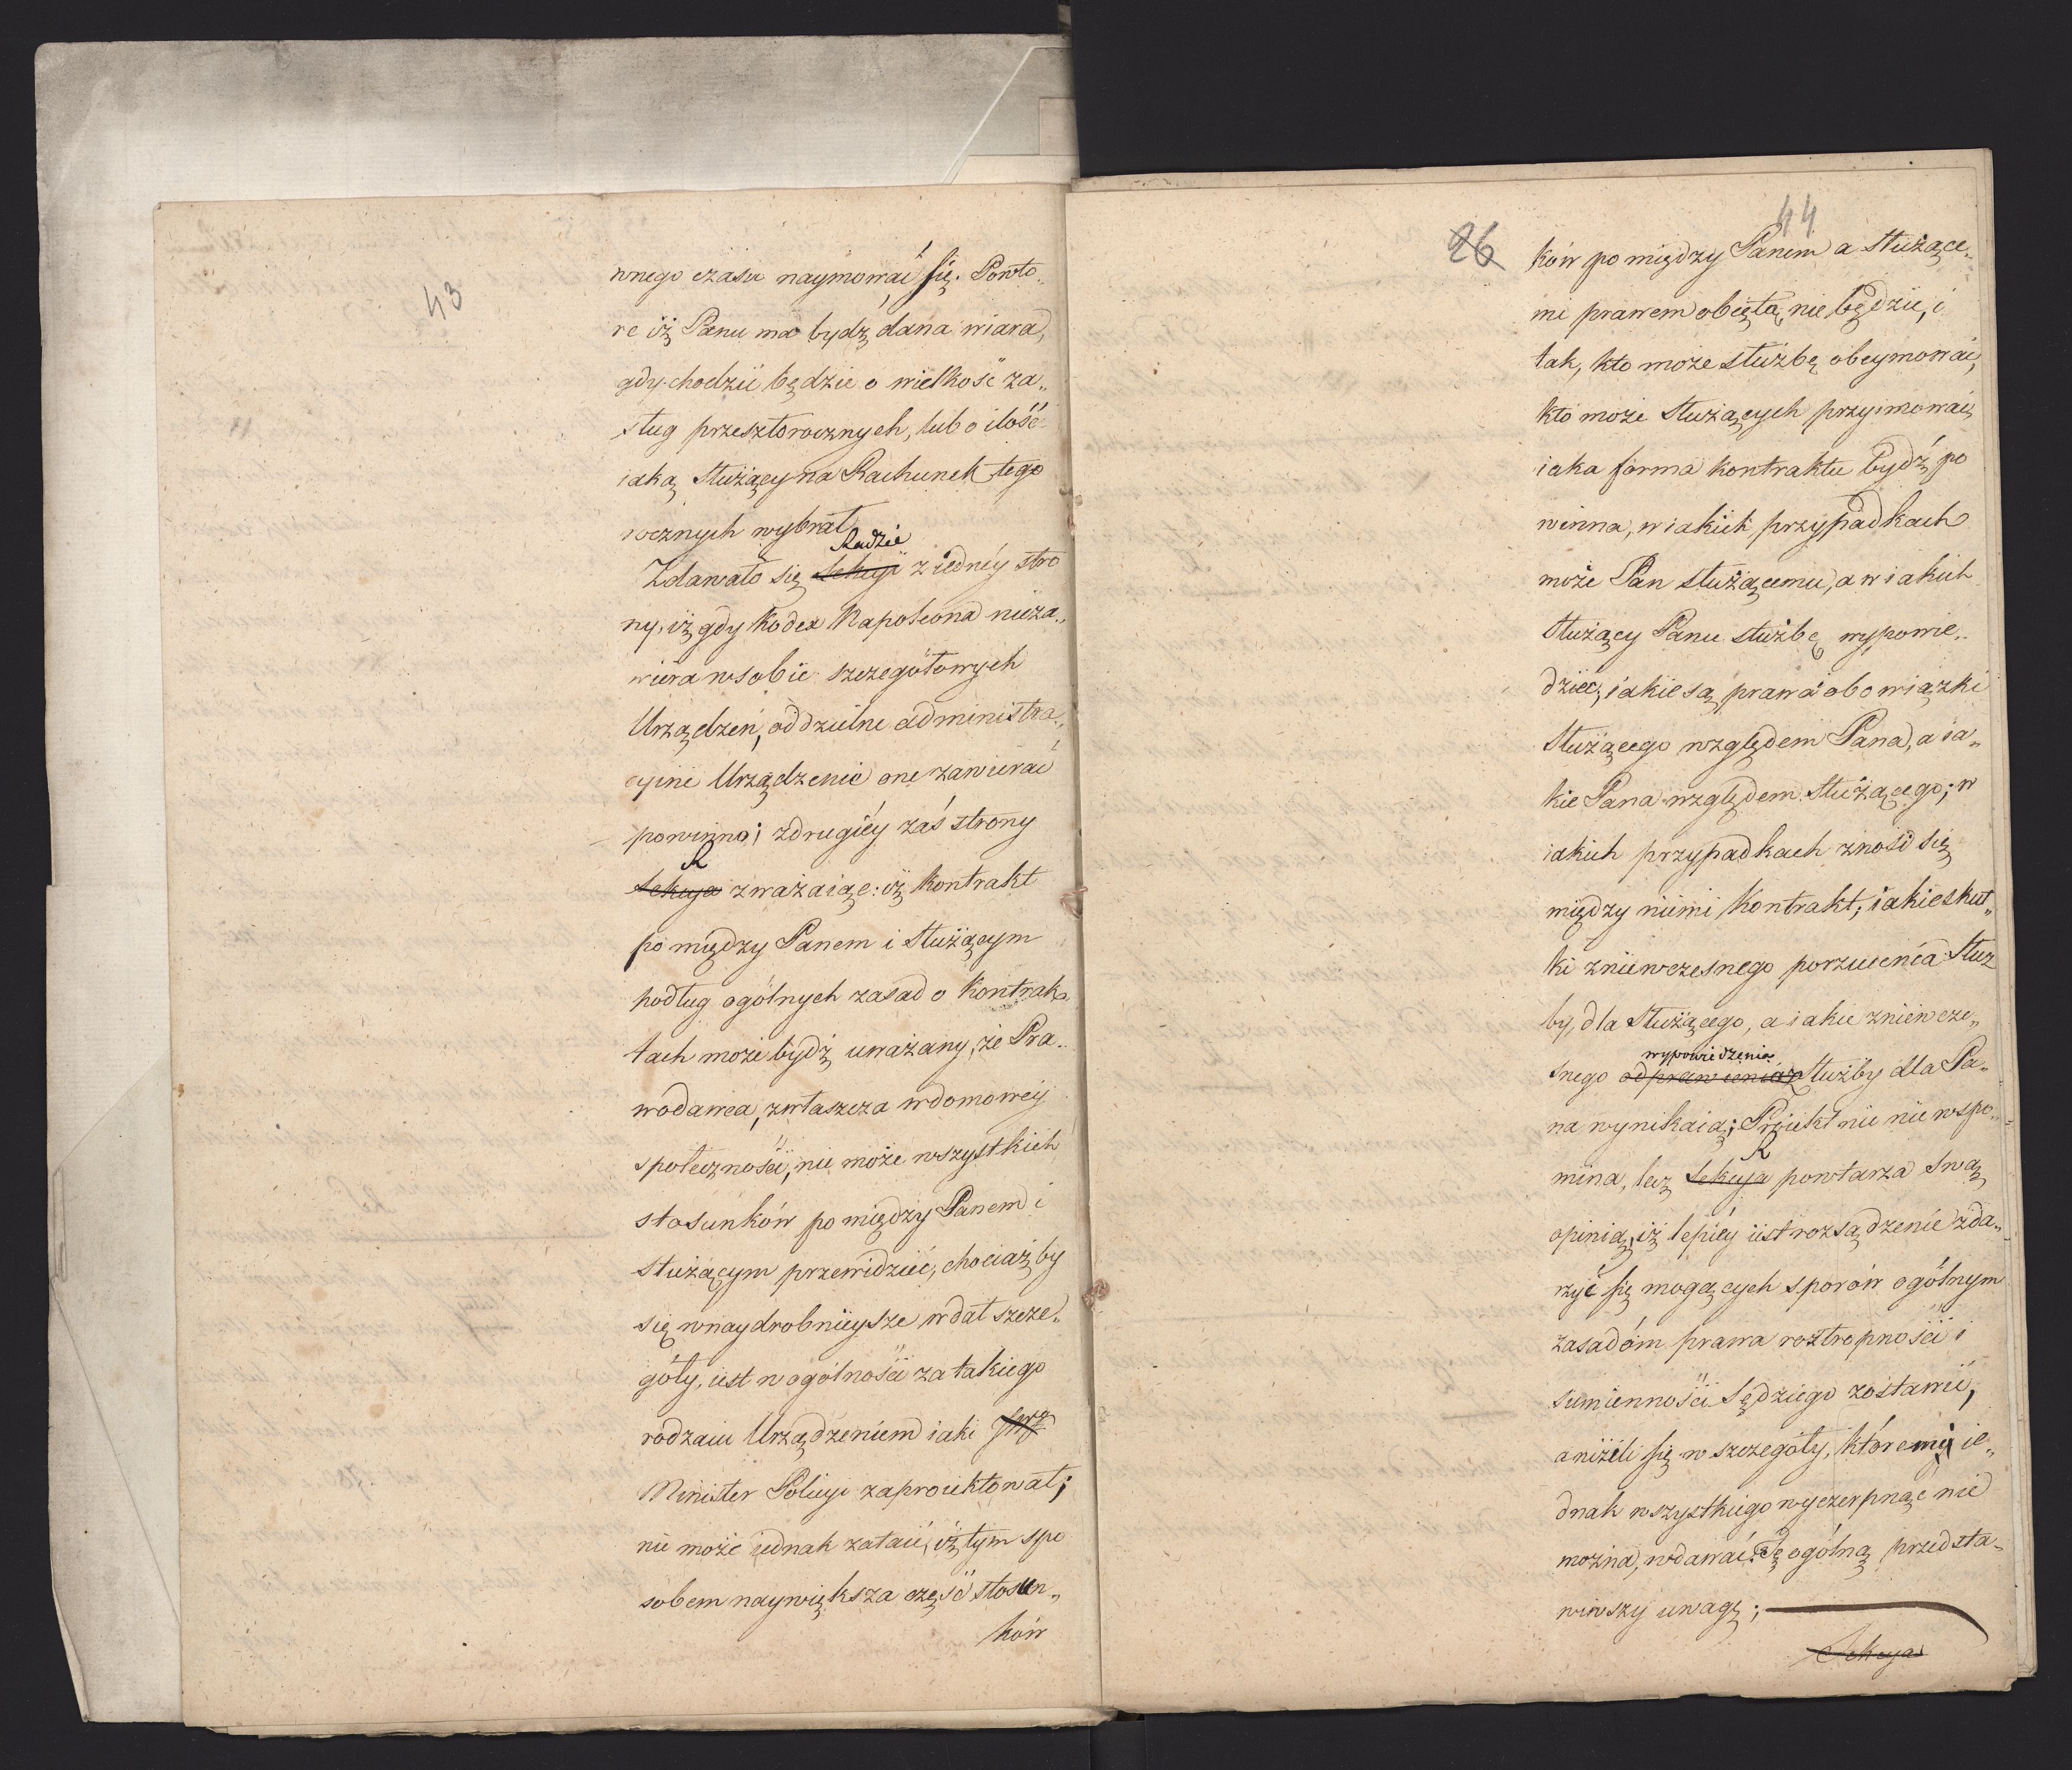 43
wnego czasu naymować się. Powto„
re iż Panu ma bydź dana wiara,
gdy chodzić będzie o wielkość za„
sług przeszłorocznych, lub o ilość
iaką Służący na Rachunek tego
rocznych wybrał
Radzie
Zdawało się Sekcyi z iednéy stro
ny, iż gdy Kodex Napoleona nieza„
wiera w sobie szczegółowych
Urządzeń, oddzielne administra„
cyine Urządzenie one zawierać
powinno; z drugiéy zaś strony
R
Sekcya zważaiąc: iż Kontrakt
pomiędzy Panem i Służącym
podług ogólnych zasad o Kontrak„
tach może bydź uważany, że Pra„
wodawca, zwłaszcza w domowéy
społeczności, nie może wszystkich
stosunków pomiędzy Panem i
Służącym przewidzieć, chociażby
się w naydrobnieysze wdał szcze„
góły, iest w ogólności za takiego
rodzaiu Urządzeniem iaki
Minister Policyi zaproiektował;
nie może iednak zataić, iż tym spo
sobem naywiększa część stosun„
ków
26
44
ków pomiędzy Panem a Służące„
mi prawem obiętą nie będzie, i
tak, kto może służbę obeymować,
kto może Służących przyimować,
iaka forma kontraktu bydź po
winna, w iakich przypadkach
może Pan służącemu, a w iakich
Służący Panu służbę wypowie„
dzieć, iakie są prawa i obowiązki
Służącego względem Pana, a ia„
kie Pana względem Służącego; w
iakich przypadkach znosi się
między niemi Kontrakt; iakie skut„
ki z niewczesnego porzucenia Służ
by, dla Służącego, a iakie z niewcze„
wypowiedzenia
snego odprawienia Służby dla Pa„
na wynikaią; Proiekt nic nie wspo„
R
mina, lecz Sekcya powtarza swą
opinią, iż lepiéy iest rozsądzenie zda„
rzyć się mogących sporów ogólnym
zasadóm prawa roztropności i
sumienności Sędziego zostawić,
aniżeli się w szczegóły, któremi ie„
dnak wszystkiego wyczerpnąć nie
można, wdawać. Tę ogólną przedsta„
wiwszy uwagę;
Sekcya